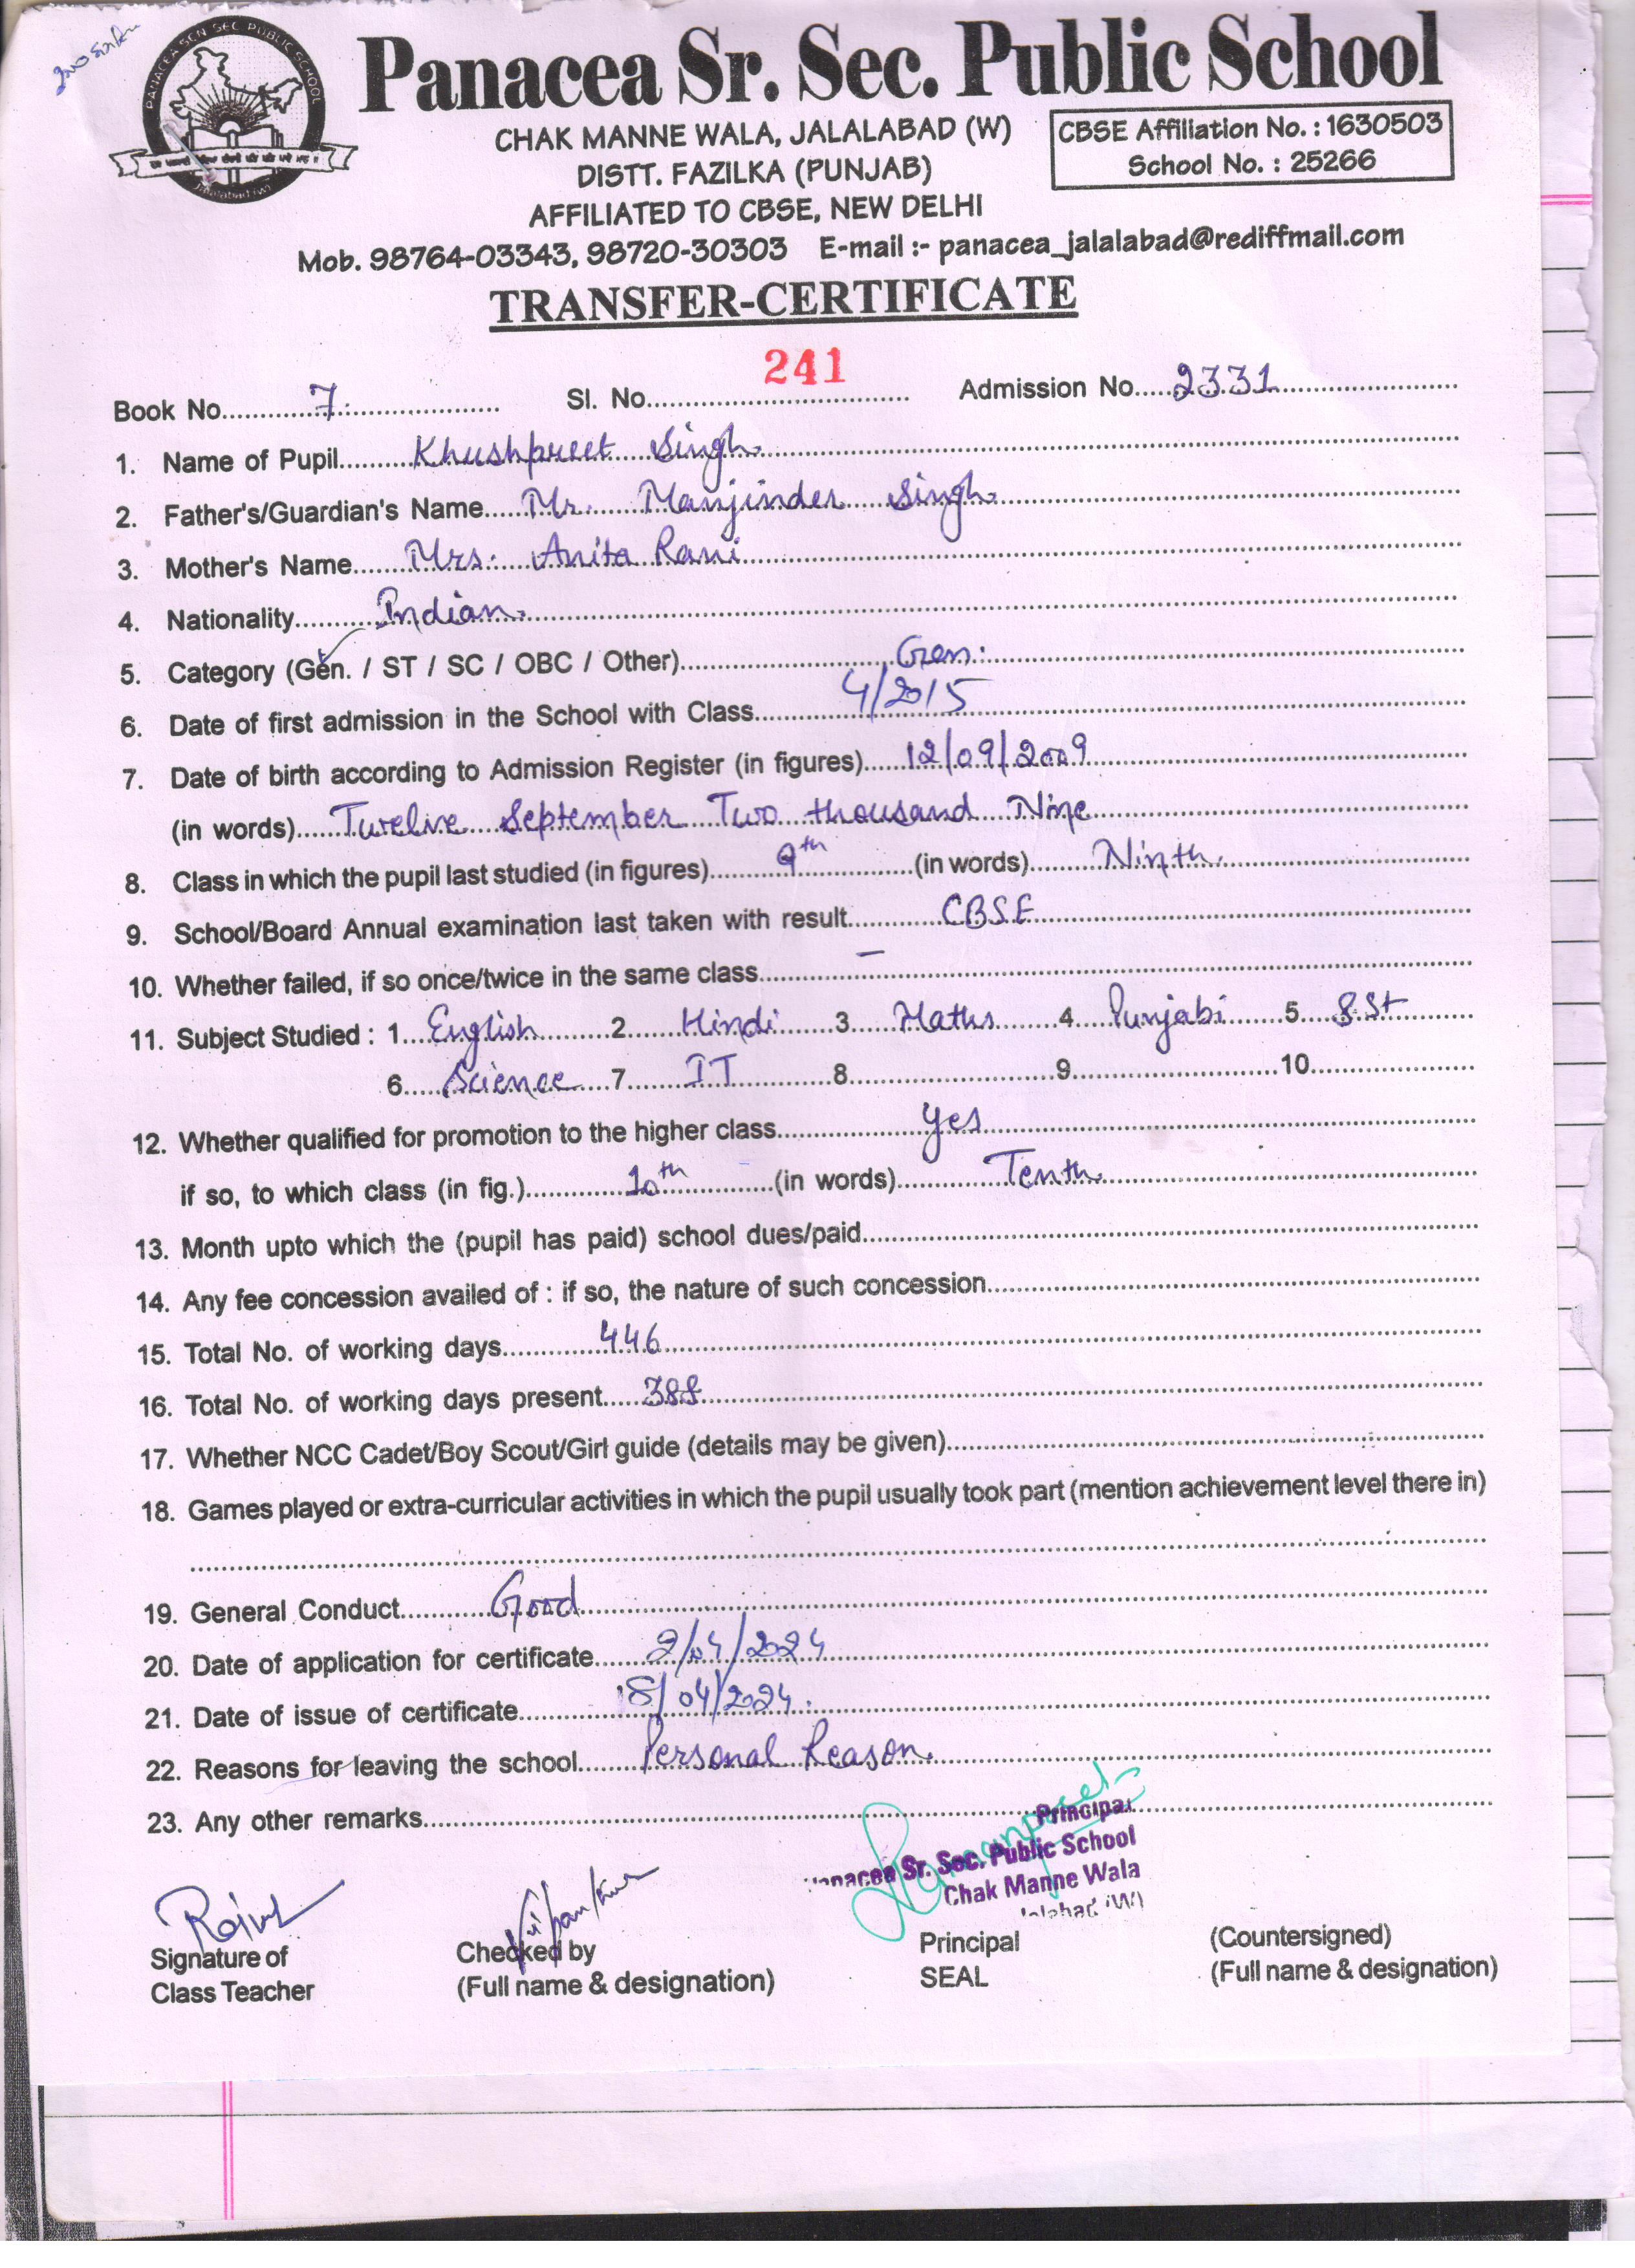 PANACEA SEN SEC PUBLIC SCHOOL
Jalalabad (w)
Panacea Sr. Sec. Public School
CHAK MANNE WALA, JALALABAD (W)
DISTT. FAZILKA (PUNJAB)
AFFILIATED TO CBSE, NEW DELHI
CBSE Affiliation No. : 1630503
School No. : 25266
Mob. 98764-03343, 98720-30303 E-mail :- panacea_jalalabad@rediffmail.com
TRANSFER-CERTIFICATE
Book No. 7 Sl. No. 241 Admission No. 2331
1. Name of Pupil Khushpreet Singh
2. Father's/Guardian's Name Mr. Manjinder Singh
3. Mother's Name Mrs. Anita Rani
4. Nationality Indian.
5. Category (Gen. / ST / SC / OBC / Other) Gen.
6. Date of first admission in the School with Class 4/2015
7. Date of birth according to Admission Register (in figures) 12/09/2009
(in words) Twelve September Two thousand Nine
8. Class in which the pupil last studied (in figures) 9th (in words) Ninth
9. School/Board Annual examination last taken with result CBSE
10. Whether failed, if so once/twice in the same class —
11. Subject Studied : 1. English 2 Hindi 3 Maths 4 Punjabi 5 S.St
6 Science 7 IT 8 9 10
12. Whether qualified for promotion to the higher class yes
if so, to which class (in fig.) 10th (in words) Tenth
13. Month upto which the (pupil has paid) school dues/paid
14. Any fee concession availed of : if so, the nature of such concession
15. Total No. of working days 446
16. Total No. of working days present 388
17. Whether NCC Cadet/Boy Scout/Girl guide (details may be given)
18. Games played or extra-curricular activities in which the pupil usually took part (mention achievement level there in)
19. General Conduct Good
20. Date of application for certificate 2/04/2024
21. Date of issue of certificate 8/04/2024
22. Reasons for leaving the school Personal Reason
23. Any other remarks
Principal
Panacea Sr. Sec. Public School
Chak Manne Wala
Jalalabad (W)
Signature of Checked by Principal (Countersigned)
Class Teacher (Full name & designation) SEAL (Full name & designation)